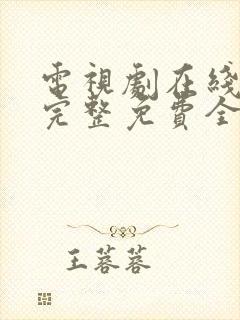 電視劇在綫
完整免費全
王蓉蓉